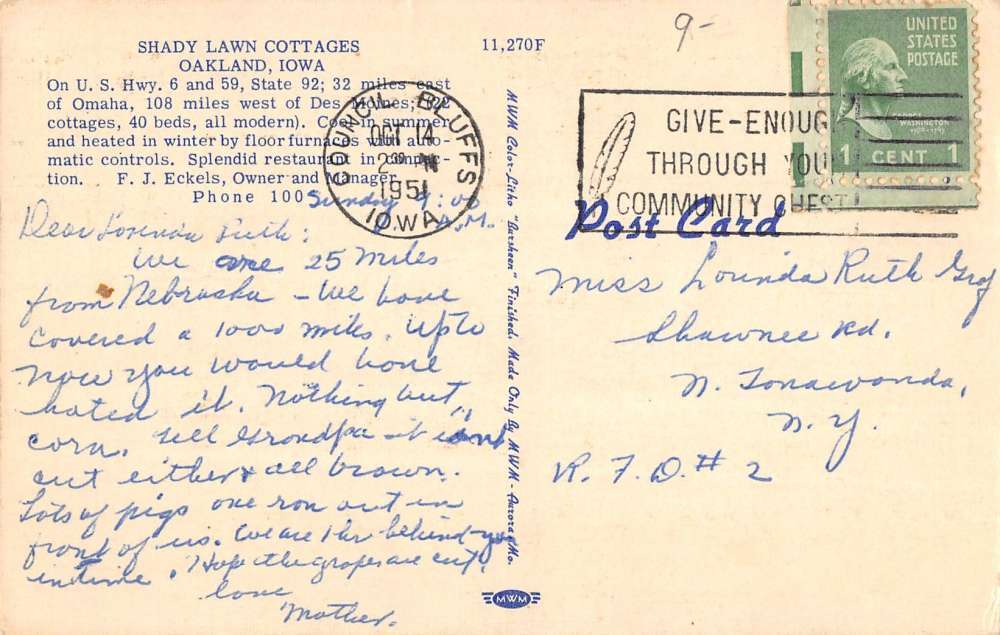 9-
SHADY LAWN COTTAGES
OAKLAND, IOWA
On U. S. Hwy. 6 and 59, State 92; 32 miles east
of Omaha, 108 miles west of Des Moines; 22
cottages, 40 beds, all modern). Cool in summer
and heated in winter by floor furnaces with auto-
matic controls. Splendid restaurant in connec-
tion. F. J. Eckels, Owner and Manager
Phone 100
11,270F
COUNCIL BLUFFS
OCT 14
2 30 PM
1951
IOWA
GIVE-ENOUGH
THROUGH YOUR
COMMUNITY CHEST
UNITED
STATES
POSTAGE
WASHINGTON
1 CENT 1
Post Card
Sunday 9:00
A.M.
Dear Lorinda Ruth:
We are 25 miles
from Nebraska - We have
covered a 1000 miles. Up to
now you would have
hated it. Nothing but
corn. Tell Grandpa it isn't
cut either & all brown.
Lots of pigs one ran out in
front of us. We are 1 hr behind you
in time. Hope the grapes are cut.
love
Mother.
MWM Color-Litho "Darsheen" Finished. Made Only By MWM - Aurora, Mo.
MWM
Miss Lorinda Ruth Graf
Shawnee Rd.
N. Tonawanda,
N. Y.
R. F. D. # 2